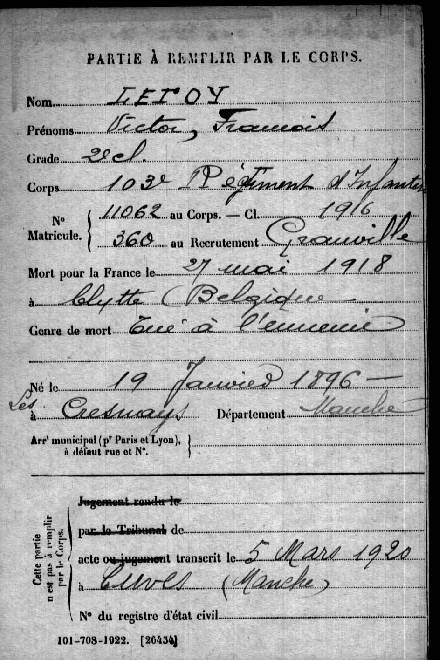 PARTIE À REMPLIR PAR LE CORPS.
Nom LEROY
Prénoms Victor, Francois
Grade 2e cl.
Corps 103e Régiment d'Infanterie
N° Matricule. 11062 au Corps. — Cl. 1916
360 au Recrutement Granville
Mort pour la France le 27 mai 1918
à Clytte (Belgique
Genre de mort Tué à l'ennemi
Né le 19 Janvier 1896
à Les Cresnays Département Manche
Arrt municipal (pr Paris et Lyon),
à défaut rue et N°.
Cette partie
n'est pas à remplir
par le Corps.
Jugement rendu le
par le Tribunal de
acte ou jugement transcrit le 5 Mars 1920
à Cuves (Manche)
N° du registre d'état civil
101-708-1922. [26434]